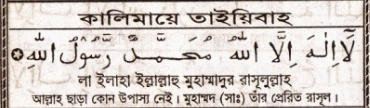 কালিমায়ে তাইয়িবাহ
لَآ اِلٰهَ اِلَّا اللّٰهُ مُحَمَّدٌ رَّسُوْلُ اللّٰهِ
লা ইলাহা ইল্লাল্লাহু মুহাম্মাদুর রাসুলুল্লাহ
আল্লাহ ছাড়া কোন উপাস্য নেই। মুহাম্মদ (সাঃ) তাঁর প্রেরিত রাসুল।